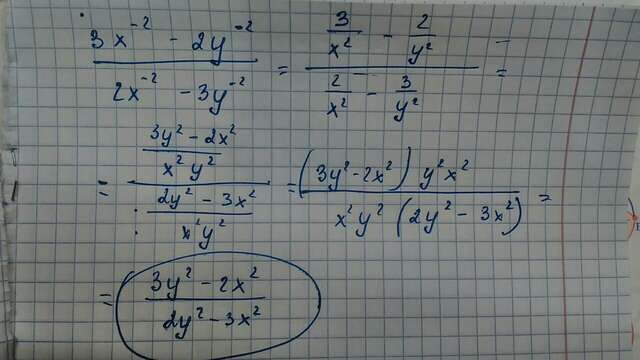 (3x⁻² - 2y⁻²)/(2x⁻² - 3y⁻²) = (3/x² - 2/y²)/(2/x² - 3/y²) =
= ((3y² - 2x²)/(x²y²))/((2y² - 3x²)/(x²y²)) = ((3y² - 2x²) y²x²)/(x²y² (2y² - 3x²)) =
= (3y² - 2x²)/(2y² - 3x²)